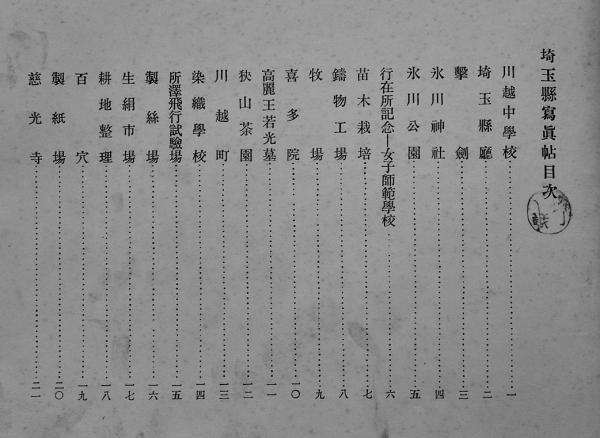 埼玉縣寫眞帖目次
川越中學校…………一
埼玉縣廳…………二
擊劍…………三
氷川神社…………四
氷川公園…………五
行在所記念―女子師範學校…………六
苗木栽培…………七
鑄物工場…………八
牧場…………九
喜多院…………一〇
高麗王若光墓…………一一
狹山茶園…………一二
川越町…………一三
染織學校…………一四
所澤飛行試驗場…………一五
製絲場…………一六
生絹市場…………一七
耕地整理…………一八
百穴…………一九
製紙場…………二〇
慈光寺…………二一